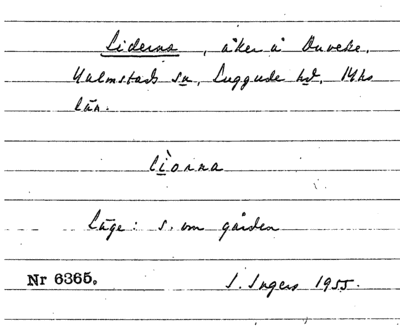 Liderna, åker å Duveke,
Halmstads sn, Luggude hd, Mhs
län.
lìơnna
Läge: s. om gården
Nr 6365. I. Ingers 1955.